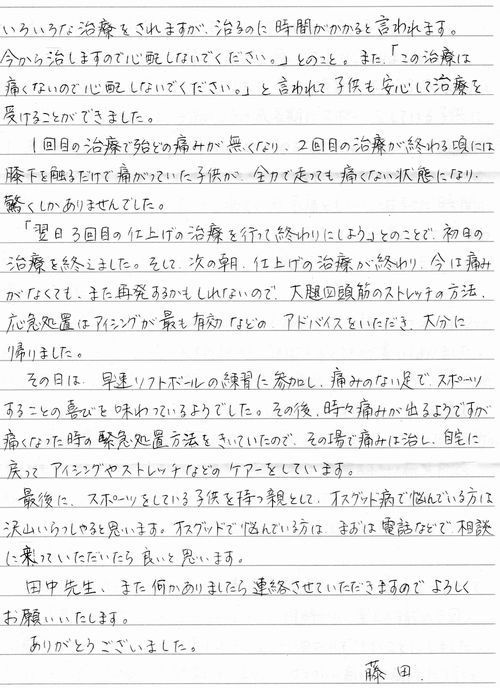 いろいろな治療をされますが、治るのに時間がかかると言われます。
今から治しますので心配しないでください。」とのこと。また、「この治療は
痛くないので心配しないでください。」と言われて子供も安心して治療を
受けることができました。
1回目の治療で殆どの痛みが無くなり、2回目の治療が終わる頃には
膝下を触るだけで痛がっていた子供が、全力で走っても痛くない状態になり、
驚くしかありませんでした。
「翌日3回目の仕上げの治療を行って終わりにしよう」とのことで、初日の
治療を終えました。そして、次の朝、仕上げの治療が終わり、今は痛み
がなくても、また再発するかもしれないので、大腿四頭筋のストレッチの方法、
応急処置はアイシングが最も有効などの、アドバイスをいただき、大分に
帰りました。
その日は、早速ソフトボールの練習に参加し、痛みのない足で、スポーツ
することの喜びを味わっているようでした。その後、時々痛みが出るようですが
痛くなった時の緊急処置方法をきいていたので、その場で痛みは治し、自宅に
戻ってアイシングやストレッチなどのケアーをしています。
最後に、スポーツをしている子供を持つ親として、オスグット病で悩んでいる方は
沢山いらっしゃると思います。オスグッドで悩んでいる方は、まずは電話などで相談
に乗っていただいたら良いと思います。
田中先生、また何かありましたら連絡させていただきますのでよろしく
お願いいたします。
ありがとうございました。
藤田.